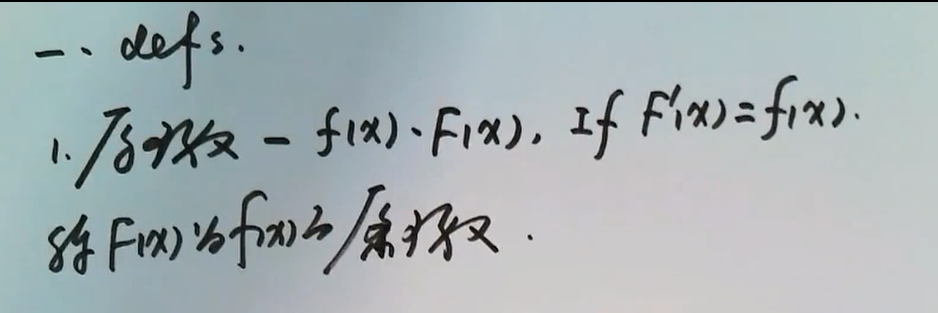 一、defs.
1. 原函数 - f(x)、F(x), If F'(x)=f(x).
称 F(x) 为 f(x) 的原函数.